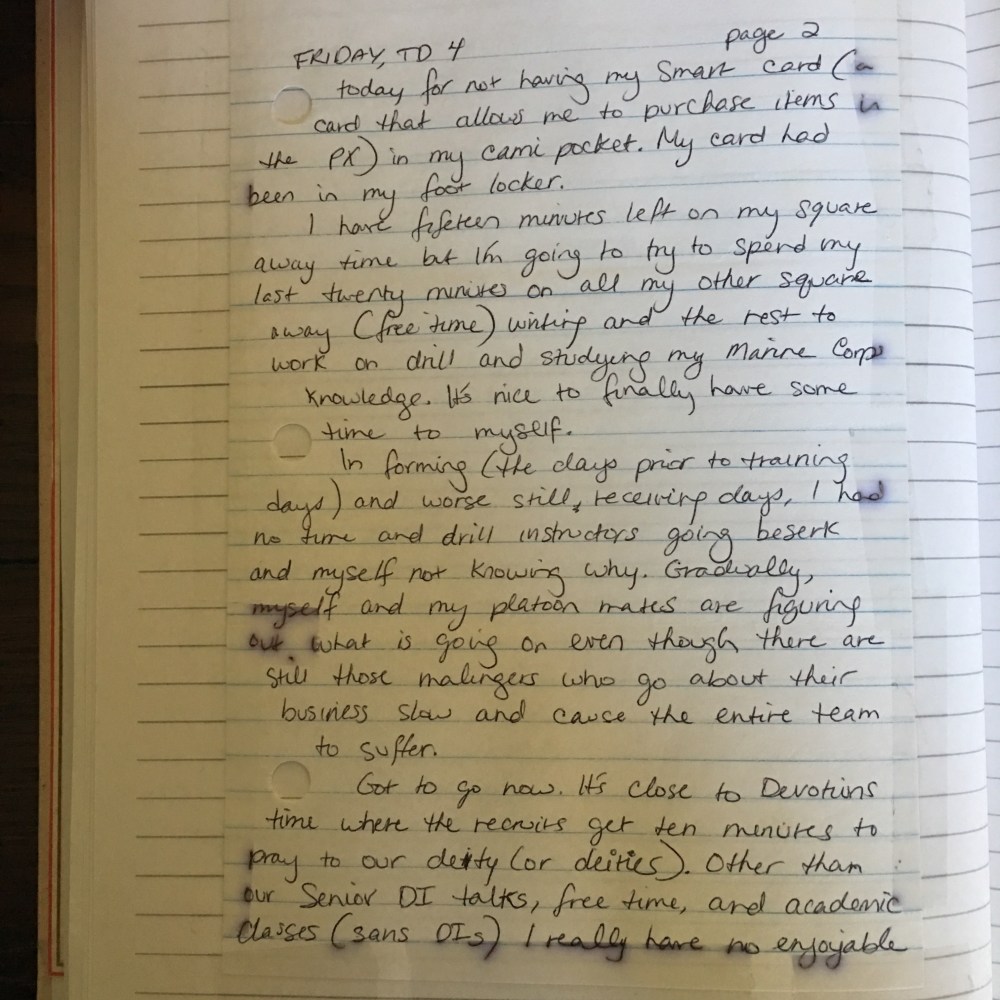 FRIDAY, TD 4 page 2
today for not having my Smart card (a
card that allows me to purchase items in
the PX) in my cami pocket. My card had
been in my foot locker.
I have fifeteen minutes left on my square
away time but I'm going to try to spend my
last twenty minutes on all my other square
away (free time) writing and the rest to
work on drill and studying my Marine Corps
Knowledge. It's nice to finally have some
time to myself.
In forming (the days prior to training
days) and worse still, receiving days, I had
no time and drill instructors going beserk
and myself not knowing why. Gradually,
myself and my platoon mates are figuring
out what is going on even though there are
still those malingers who go about their
business slow and cause the entire team
to suffer.
Got to go now. It's close to Devotions
time where the recruits get ten minutes to
pray to our deity (or deities). Other than
our Senior DI talks, free time, and academic
classes (sans DIs) I really have no enjoyable